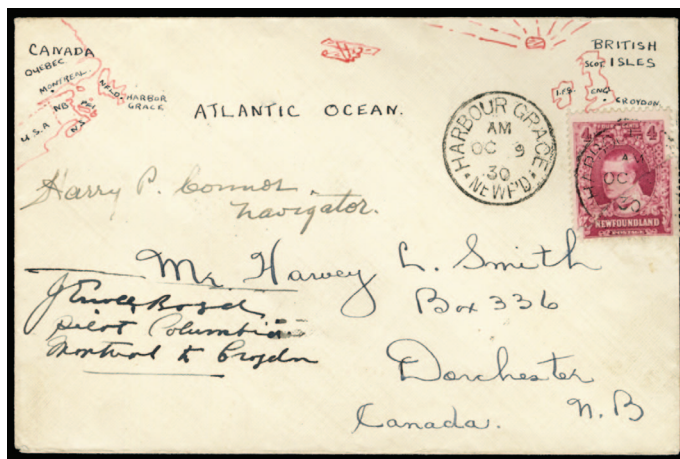 CANADA
QUEBEC.
MONTREAL.
NFLD.
HARBOR
GRACE
U.S.A
NB
P.E.I
N.S.
ATLANTIC OCEAN.
BRITISH
ISLES
SCOT.
I.F.S.
ENG.
CROYDON.
HARBOUR GRACE
AM
OC 9
30
NEWF'D
4 4
NEWFOUNDLAND
POSTAGE
OC
30
Harry P. Connor.
navigator.
Mr. Harvey L. Smith
Box 336
Dorchester
N.B
Canada.
J Erroll Boyd.
pilot Columbia
Montreal to Croydon